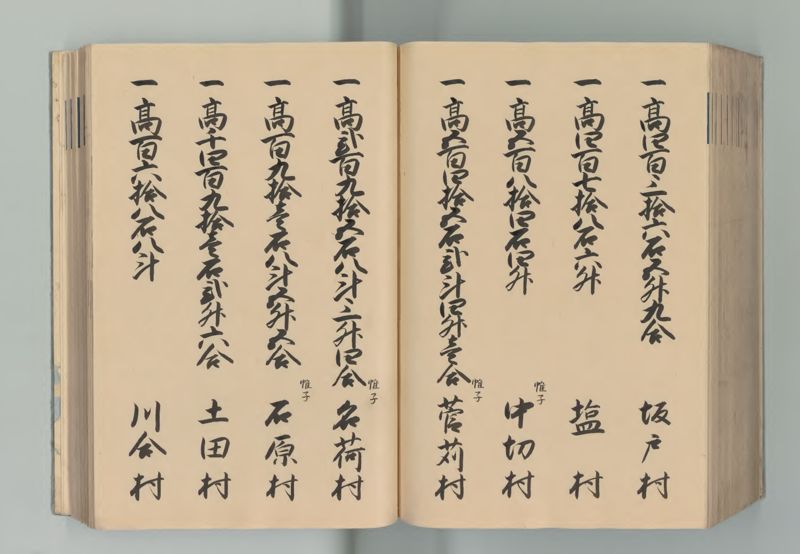 一 高四百三拾六石五升九合 坂戸村
一 高四百七拾八石六升 塩村
一 高五百八拾四石四升 帷子 中切村
一 高五百四拾五石弐斗四升壱合 帷子 菅苅村
一 高弐百九拾五石八斗三升四合 帷子 名荷村
一 高百九拾壱石八斗五升五合 帷子 石原村
一 高千四百九拾壱石弐升六合 土田村
一 高百六拾八石八斗 川合村